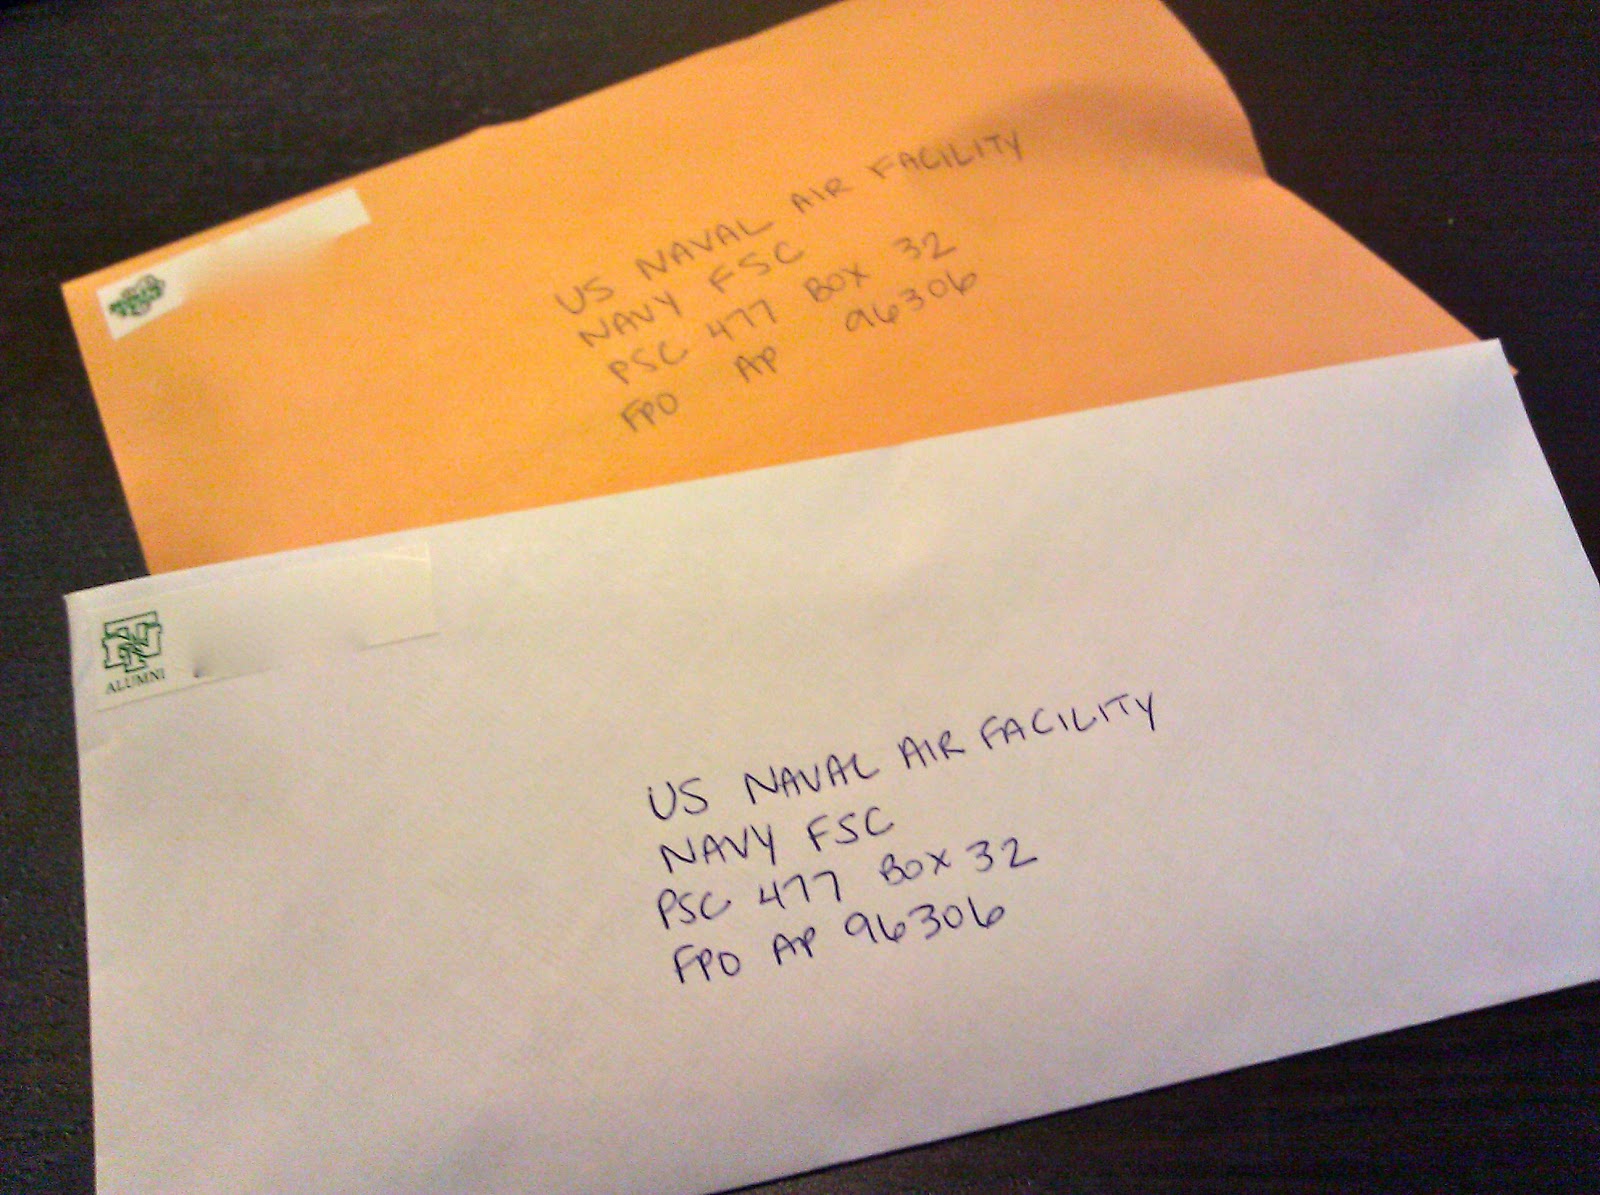 US NAVAL AIR FACILITY
NAVY FSC
PSC 477 BOX 32
FPO AP 96306
ALUMNI
US NAVAL AIR FACILITY
NAVY FSC
PSC 477 BOX 32
FPO AP 96306